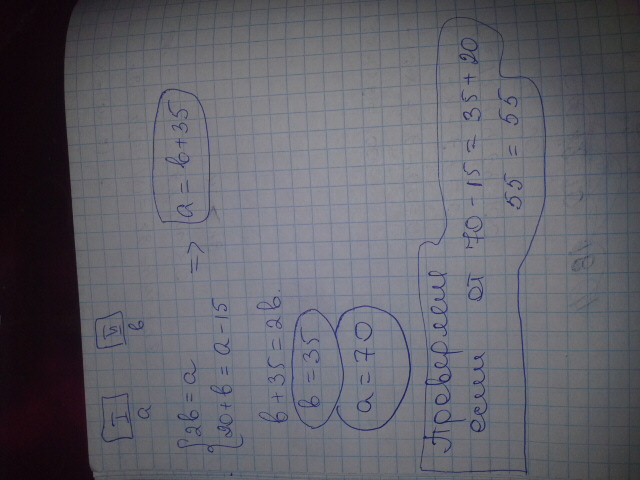 I II
a в
{2в = a
{20 + в = a - 15 => a = в + 35
в + 35 = 2в.
в = 35
a = 70
Проверяем
если от 70 - 15 = 35 + 20
55 = 55